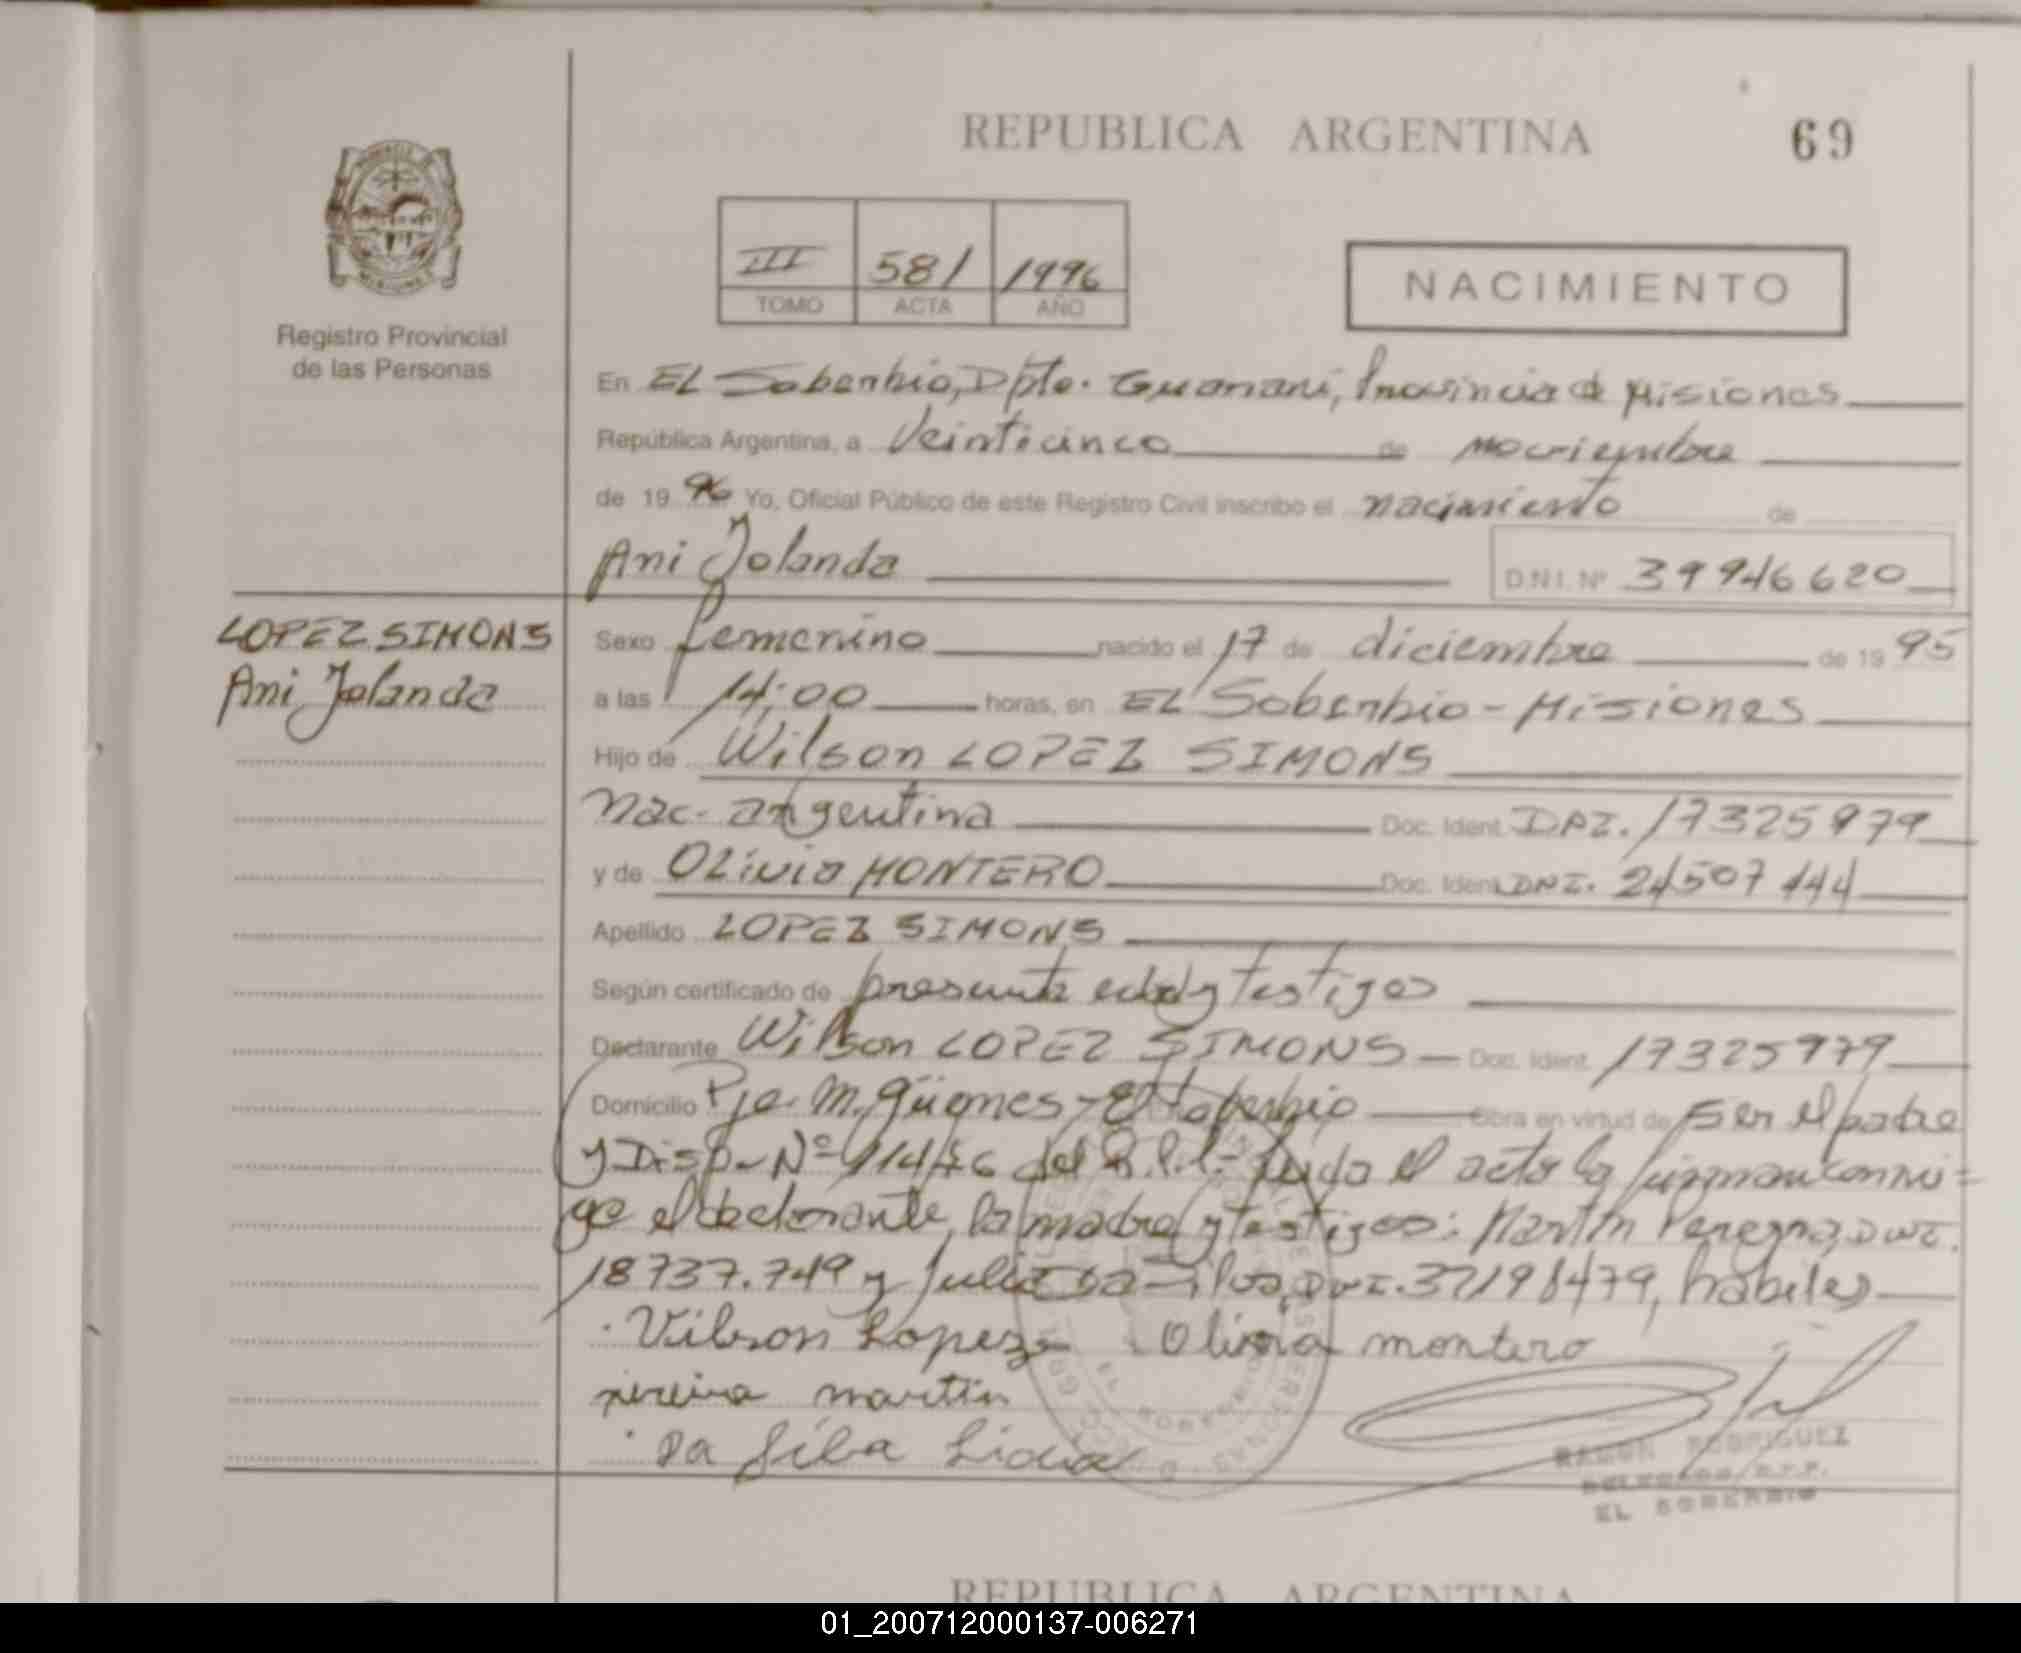 REPUBLICA ARGENTINA
69
III 581 1996
TOMO ACTA AÑO
NACIMIENTO
Registro Provincial
de las Personas
En EL Soberbio, Dpto. Guarani, Provincia de Misiones
República Argentina, a Veinticinco de noviembre
de 1996 Yo, Oficial Público de este Registro Civil inscribo el nacimiento de
Ani Jolanda D.N.I. Nº 39946620
LOPEZ SIMONS
Ani Jolanda
Sexo femenino nacido el 17 de diciembre de 1995
a las 14:00 horas, en EL Soberbio - Misiones
Hijo de Wilson LOPEZ SIMONS
Nac. argentina Doc. Ident. DNI. 17325979
y de OLivia MONTERO Doc. Ident. DNI. 24507444
Apellido LOPEZ SIMONS
Según certificado de presunta edad y testigos
Declarante Wilson LOPEZ SIMONS Doc. Ident. 17325979
Domicilio Pje. M. Güemes - El Soberbio Obra en virtud de ser el padre
y Disp. Nº del R.P.P. Leida el acta la firman conmi-
go el declarante, la madre y testigos: Martin DNI.
18737.749 y Da DNI. habiles
Vilson Lopez Olivia montero
pereira martin
Da Silva Lidia
RAMON RODRIGUEZ
DELEGADO R.P.P.
EL SOBERBIO
REPUBLICA ARGENTINA
01_200712000137-006271